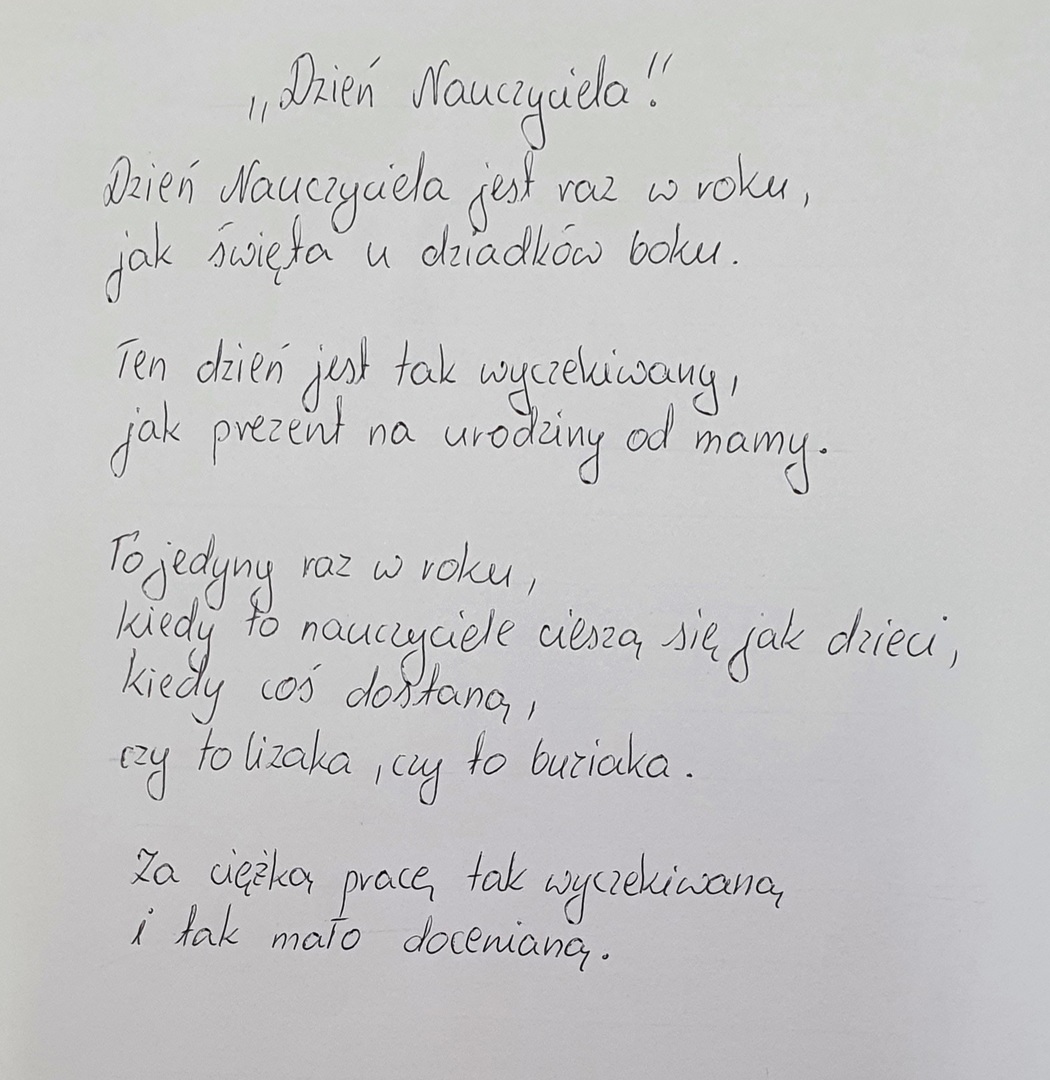 „Dzień Nauczyciela!"
Dzień Nauczyciela jest raz w roku,
jak święta u dziadków boku.
Ten dzień jest tak wyczekiwany,
jak prezent na urodziny od mamy.
To jedyny raz w roku,
kiedy to nauczyciele cieszą się jak dzieci,
kiedy coś dostaną,
czy to lizaka, czy to buziaka.
Za ciężką pracę tak wyczekiwaną
i tak mało docenianą.